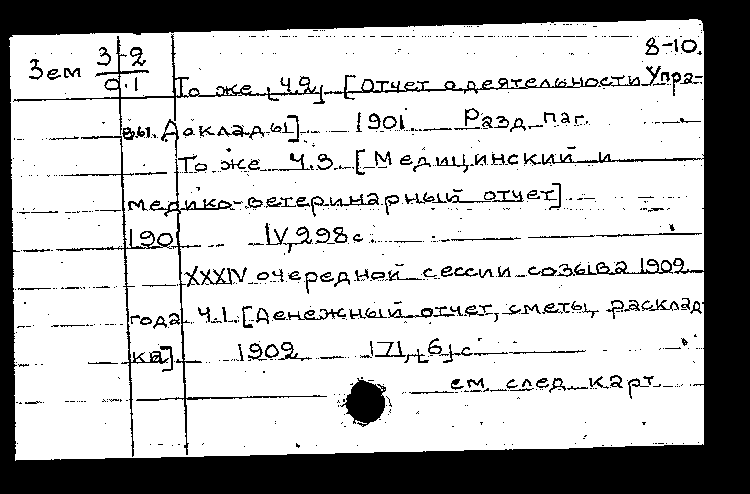 8-10.
Зем 3-2
0.1
То же [Ч.2] [Отчет о деятельности Упра-
вы. Доклады]. 1901. Разд. паг.
То же Ч.3. [Медицинский и
медико-ветеринарный отчет]
190 IV, 298 с.
XXXIV очередной сессии созыва 1902
года Ч.1. [Денежный отчет, сметы, расклад
ка]. 1902 171, [6] с.
см. след. карт.